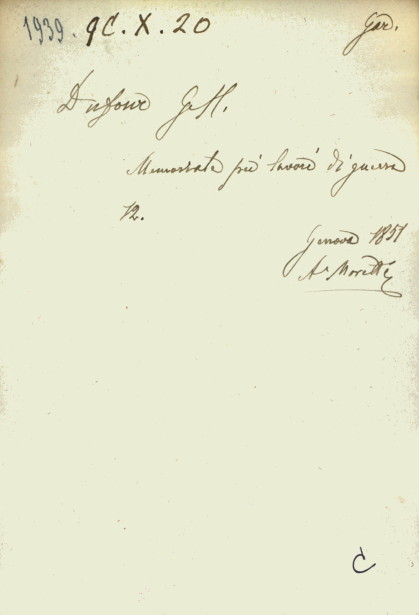 1939. 9C.X.20 Gar.
Dufour G. H.
per lavori di guerra
12.
Genova 1851
A. Moretti
C